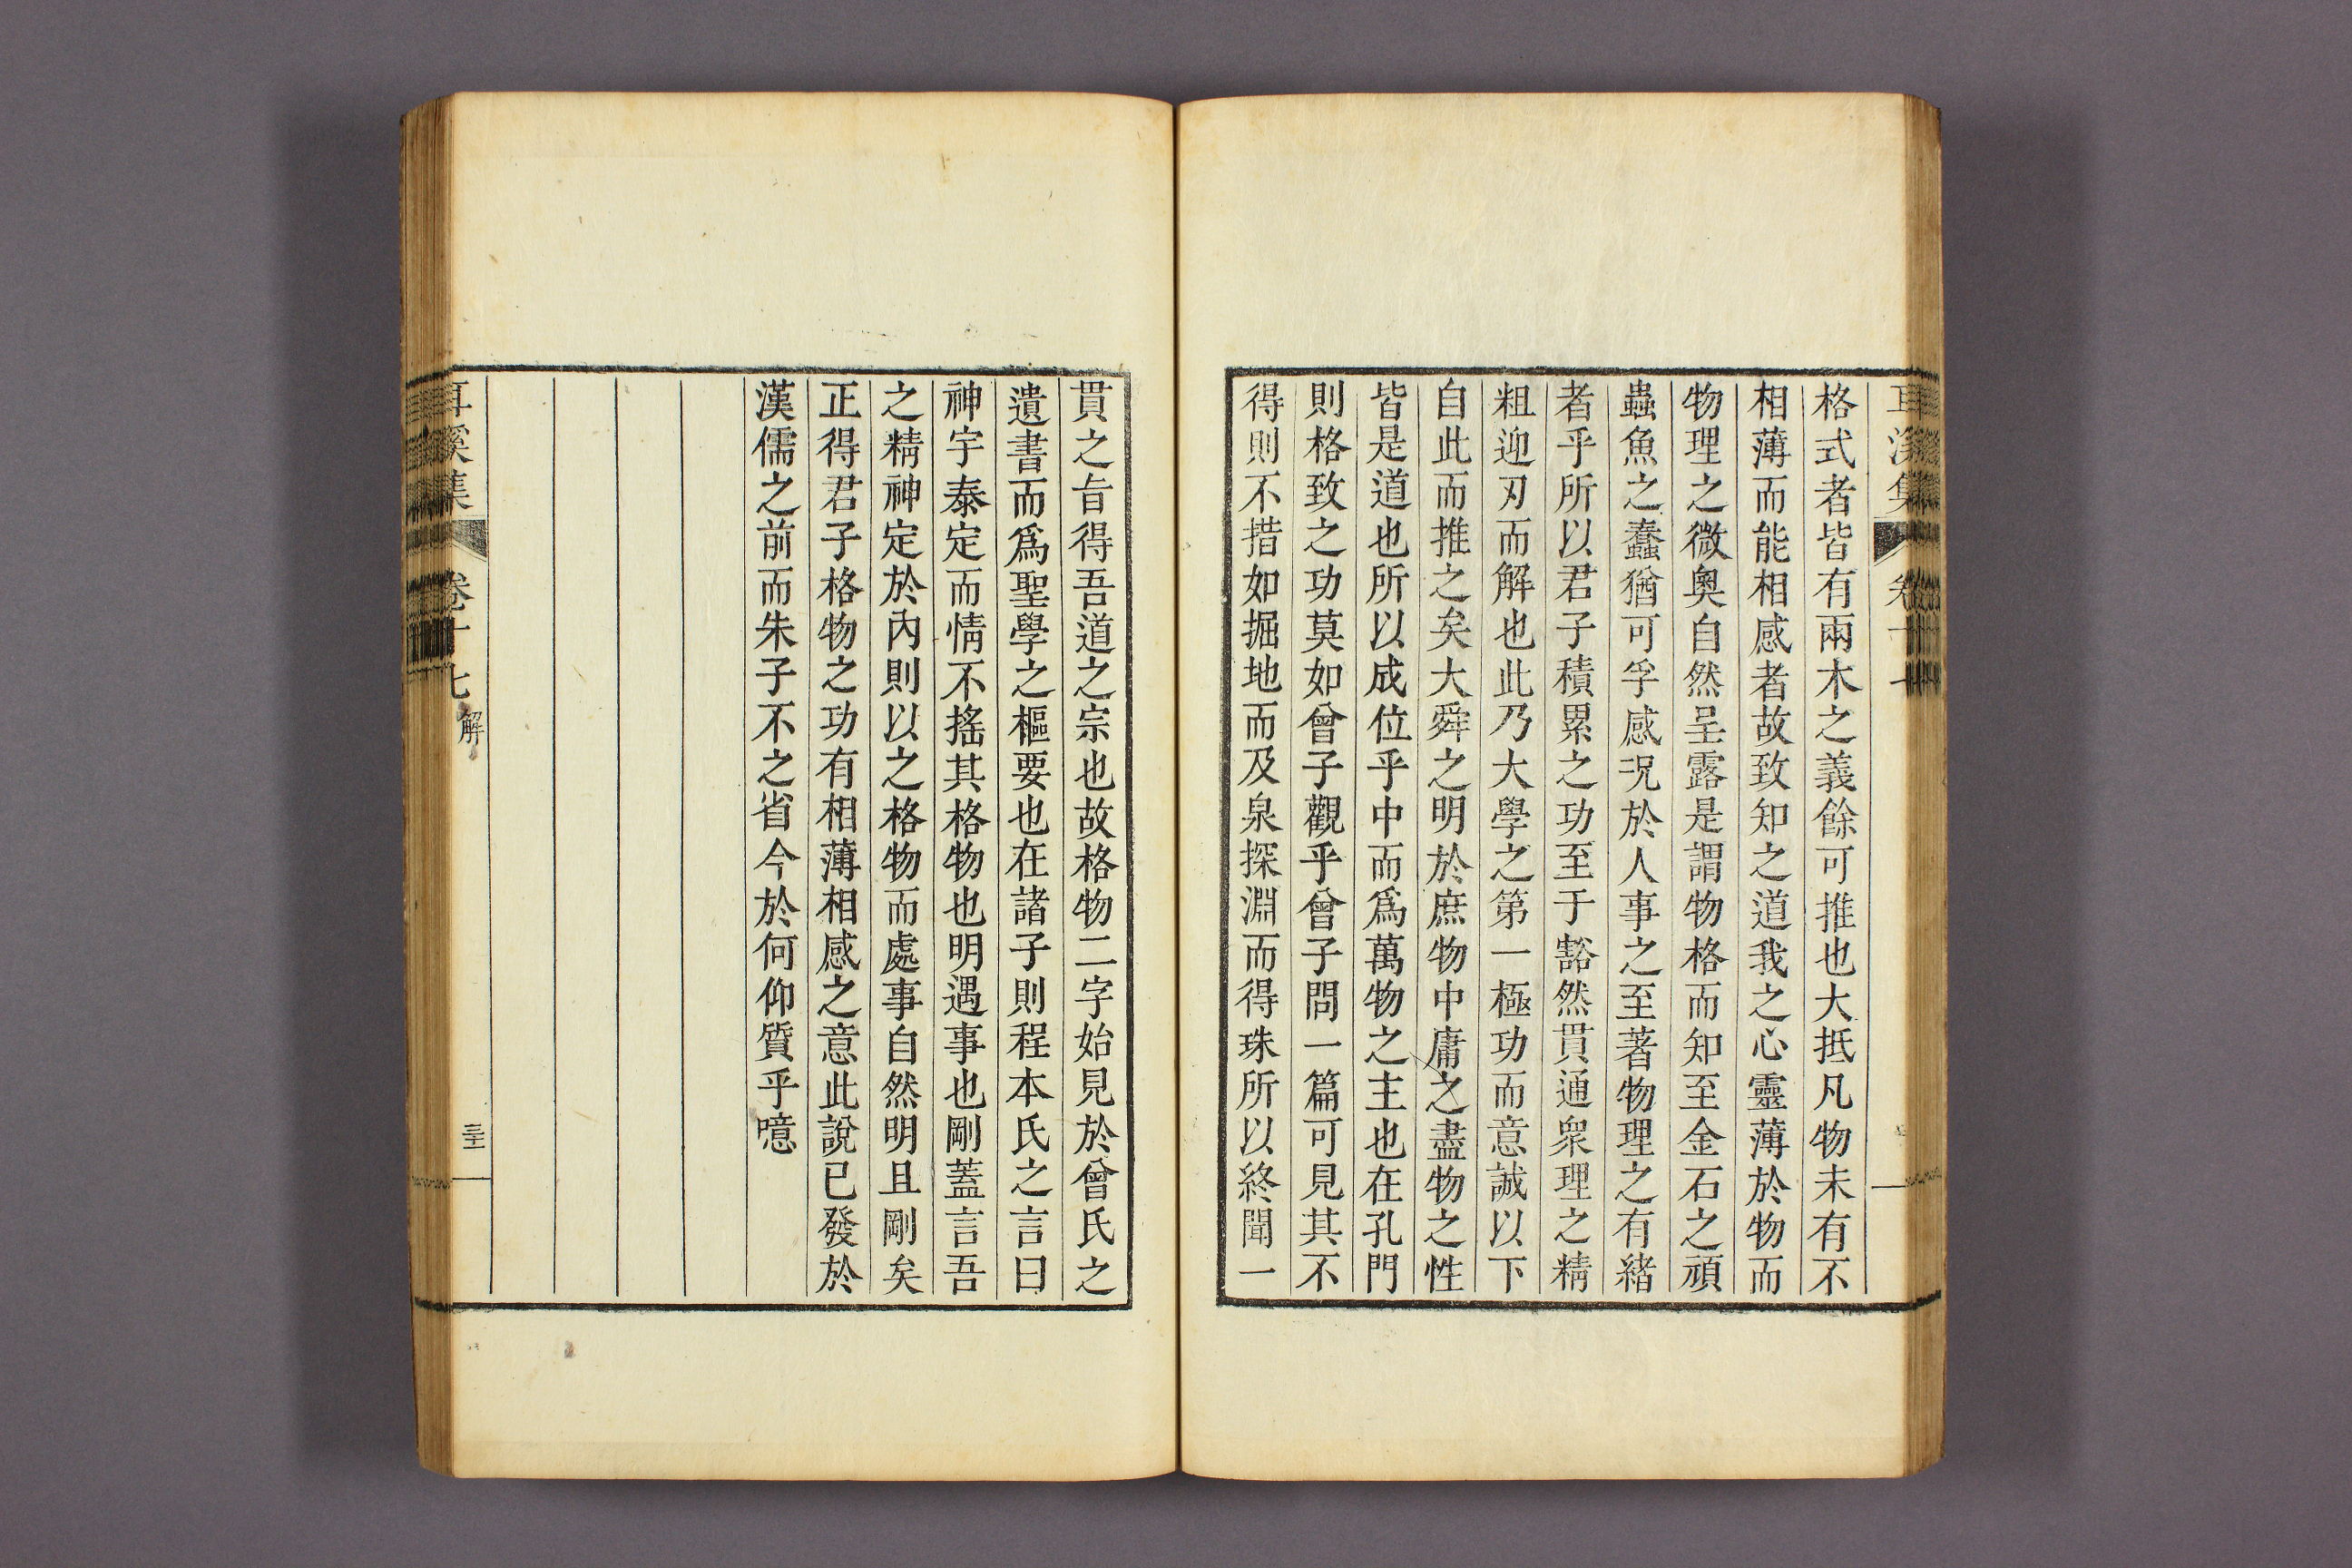 格式者皆有兩木之義餘可推也大抵凡物未有不
相薄而能相感者故致知之道我之心靈薄於物而
物理之微奧自然呈露是謂物格而知至金石之頑
蟲魚之蠢猶可孚感况於人事之至著物理之有緒
者乎所以君子積累之功至于豁然貫通衆理之精
粗迎刃而解也此乃大學之第一極功而意誠以下
自此而推之矣大舜之明於庶物中庸之盡物之性
皆是道也所以成位乎中而爲萬物之主也在孔門
則格致之功莫如曾子觀乎曾子問一篇可見其不
得則不措如掘地而及泉探淵而得珠所以終聞一
貫之旨得吾道之宗也故格物二字始見於曾氏之
遺書而爲聖學之樞要也在諸子則程本氏之言曰
神宇泰定而情不搖其格物也明遇事也剛蓋言吾
之精神定於內則以之格物而處事自然明且剛矣
正得君子格物之功有相薄相感之意此說已發於
漢儒之前而朱子不之省今於何仰質乎噫
耳溪集 卷十七 解